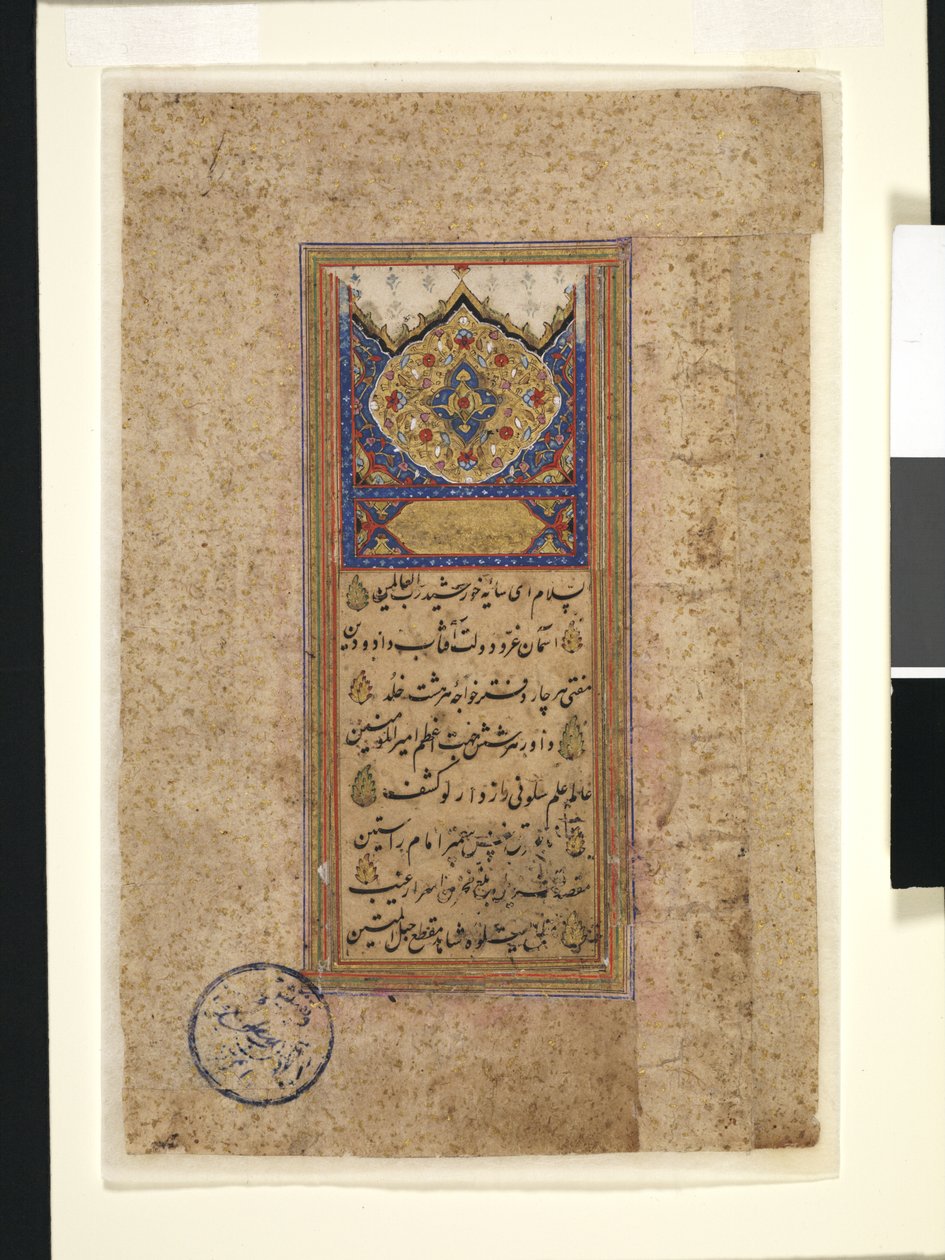 السلام ای سایۀ خورشید رب العالمین
اسمان عزّ و دولت آفتاب داد و دین
مفتی هر چار دفتر خواجۀ هر هشت خلد
داور هر شش جهت اعظم امیر المومنین
عالم علم سلونی راز دار لو کشف
پیغمبر امام راستین
مقصد بلغ اسرار غیب
یتلوه شاهد مقطع حبل المتین